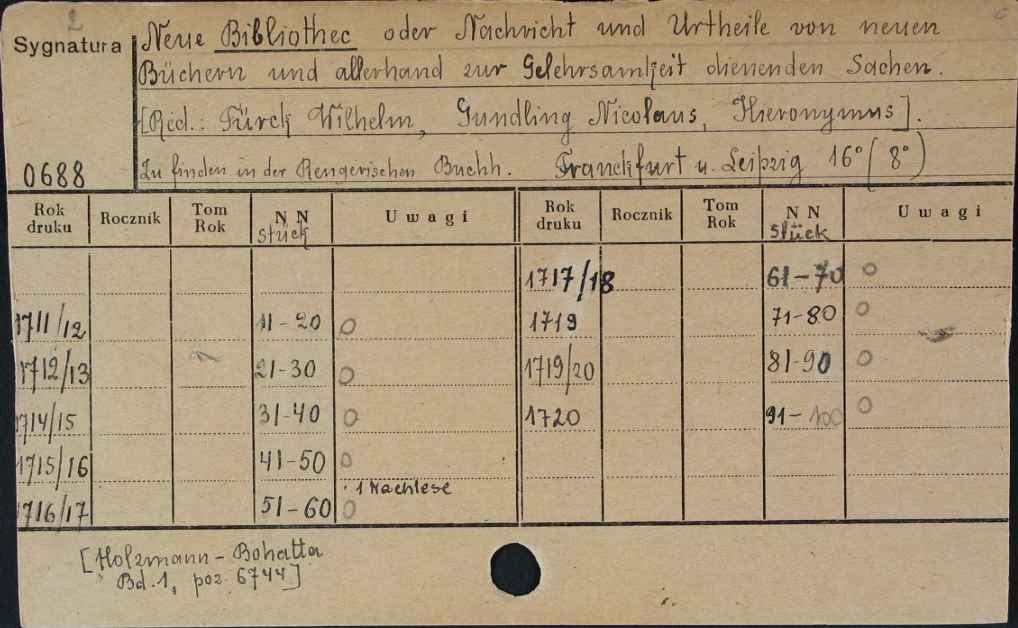 2
Sygnatura
Neue Bibliothec oder Nachricht und Urtheile von neuen
Büchern und allerhand zur Gelehrsamkeit dienenden Sachen.
[Red.: Türck Wilhelm, Gundling Nicolaus, Hieronymus].
0688
Zu finden in der Rengerischen Buchh. Franckfurt u. Leipzig 16° (8°)
Rok druku Rocznik Tom Rok NN Stück Uwagi Rok druku Rocznik Tom Rok NN Stück Uwagi
1717/18 61-70 O
1711/12 11-20 O 1719 71-80 O
1712/13 21-30 O 1719/20 81-90 O
1714/15 31-40 O 1720 91-100 O
1715/16 41-50 O
1716/17 51-60 O 1 Nachlese
[Holzmann-Bohatta
Bd. 1, poz. 6744]